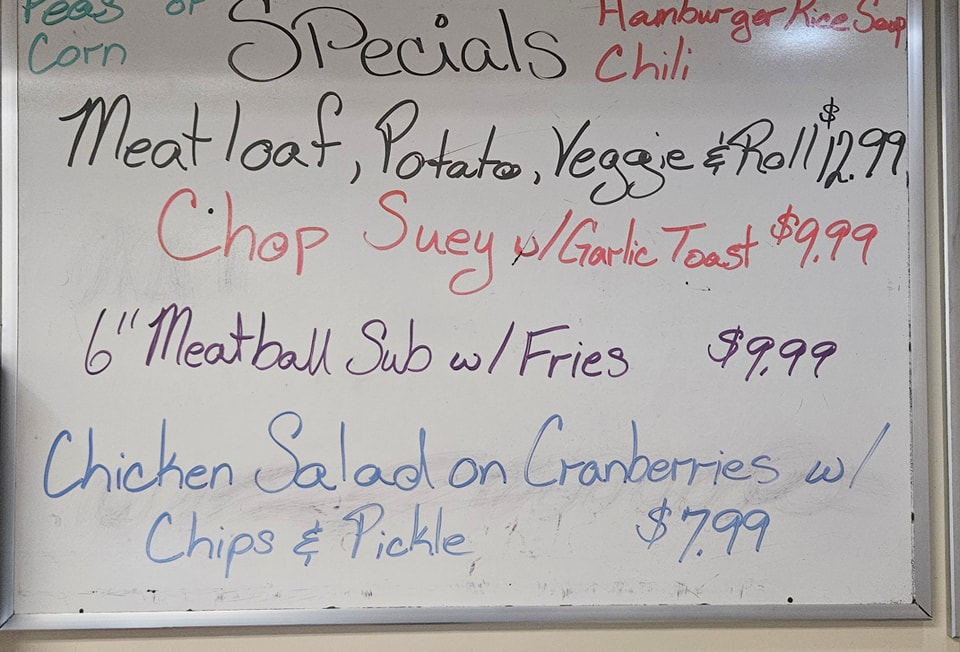 Peas or
Corn
Specials
Hamburger Rice Soup
Chili
Meatloaf, Potato, Veggie & Roll $12.99
Chop Suey w/Garlic Toast $9.99
6" Meatball Sub w/ Fries $9.99
Chicken Salad on Cranberries w/
Chips & Pickle $7.99